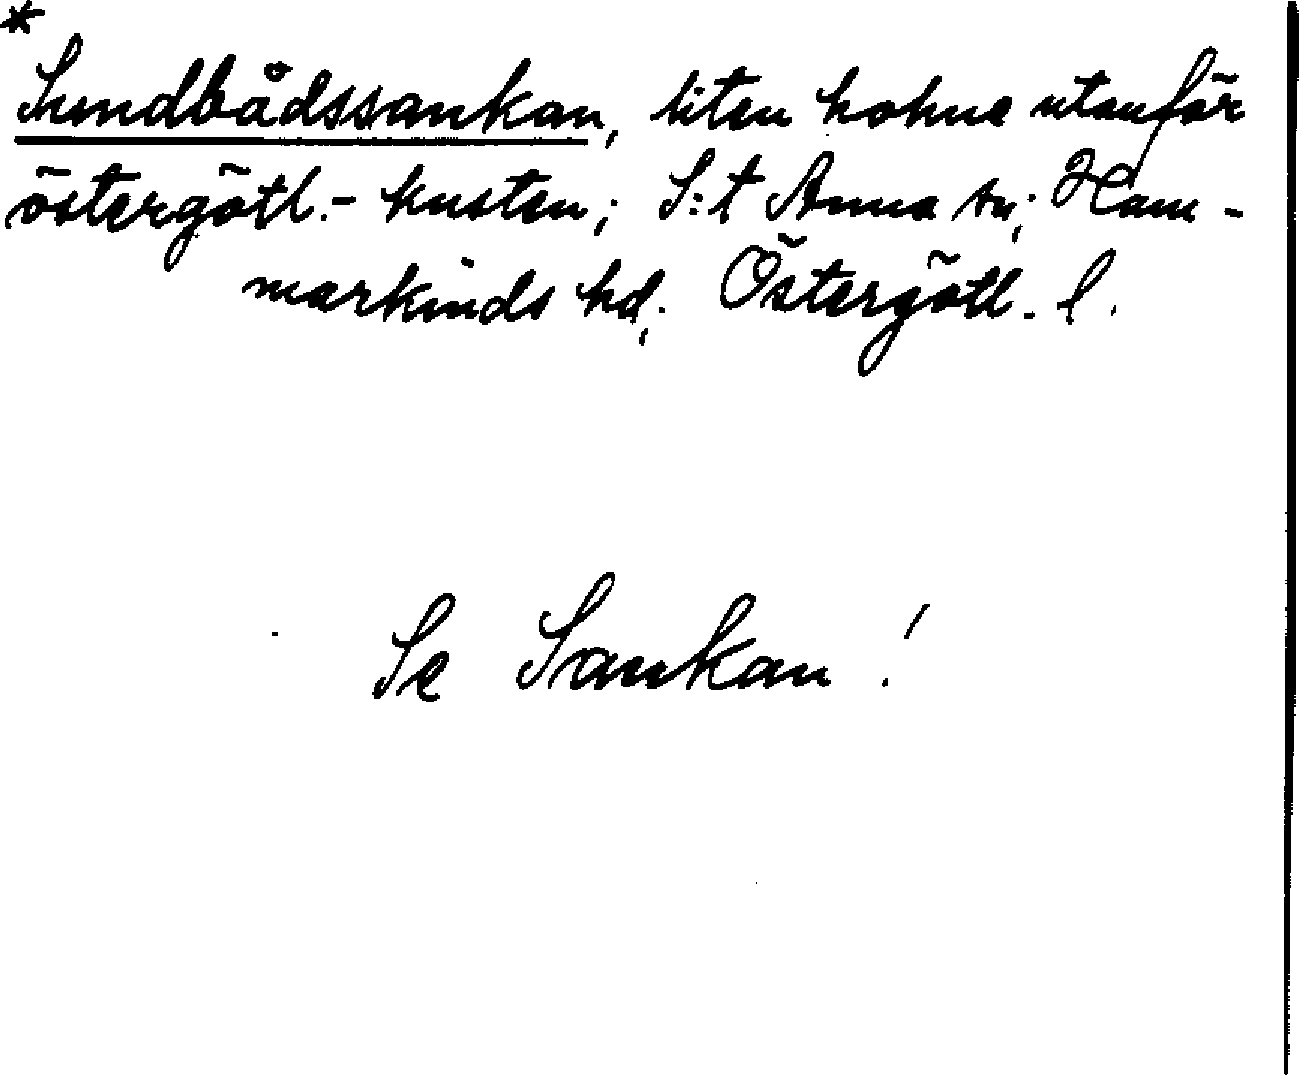 *
Sundbådssankan, liten holme utanför
östergötl.- kusten; S:t Anna sn; Ham-
markinds hd; Östergötl. l.
Se Sankan!